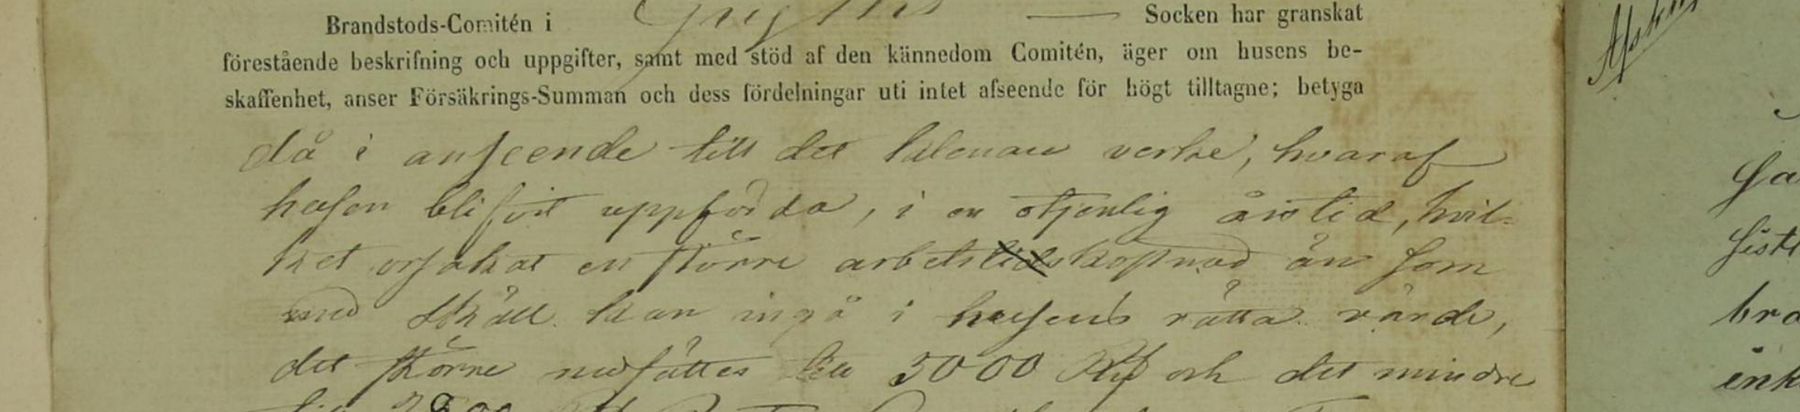 Brandstods-Comitén i — Socken har granskat
förestående beskrifning och uppgifter, samt med stöd af den kännedom Comitén, äger om husens be-
skaffenhet, anser Försäkrings-Summan och dess fördelningar uti intet afseende för högt tilltagne; betyga
då i anseende till det verke, hvaraf
husen blifvit uppförda, i en otjenlig årstid, hvil-
ket orsakat en större arbetskostnad än som
med skäll kan ingå i husens rätta värde,
det större nedsättes till 3000 och det mindre
till